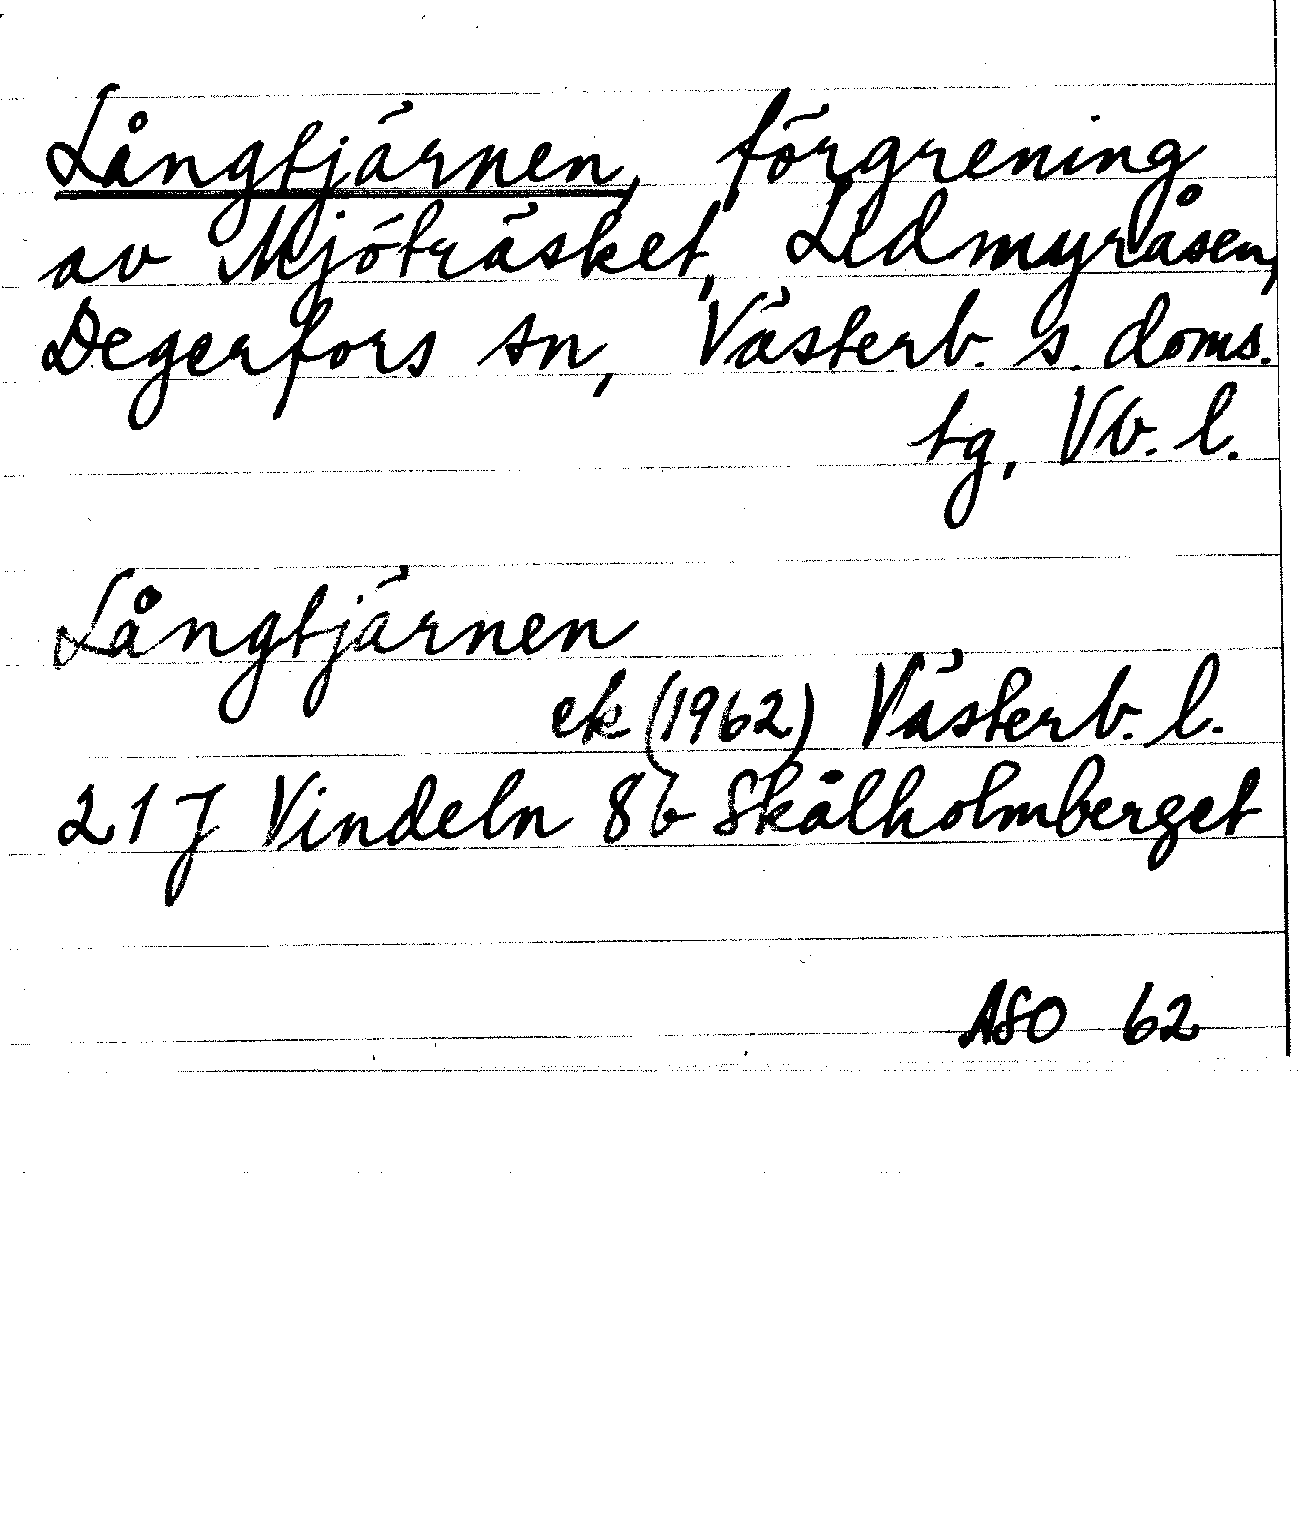 Långtjärnen, förgrening
av Mjöträsket, Lidmyråsen,
Degerfors sn, Västerb. s. doms.
tg, Vb. l.
Långtjärnen
ek (1962) Västerb. l.
21 J Vindeln 8b Skålholmberget
ASO 62